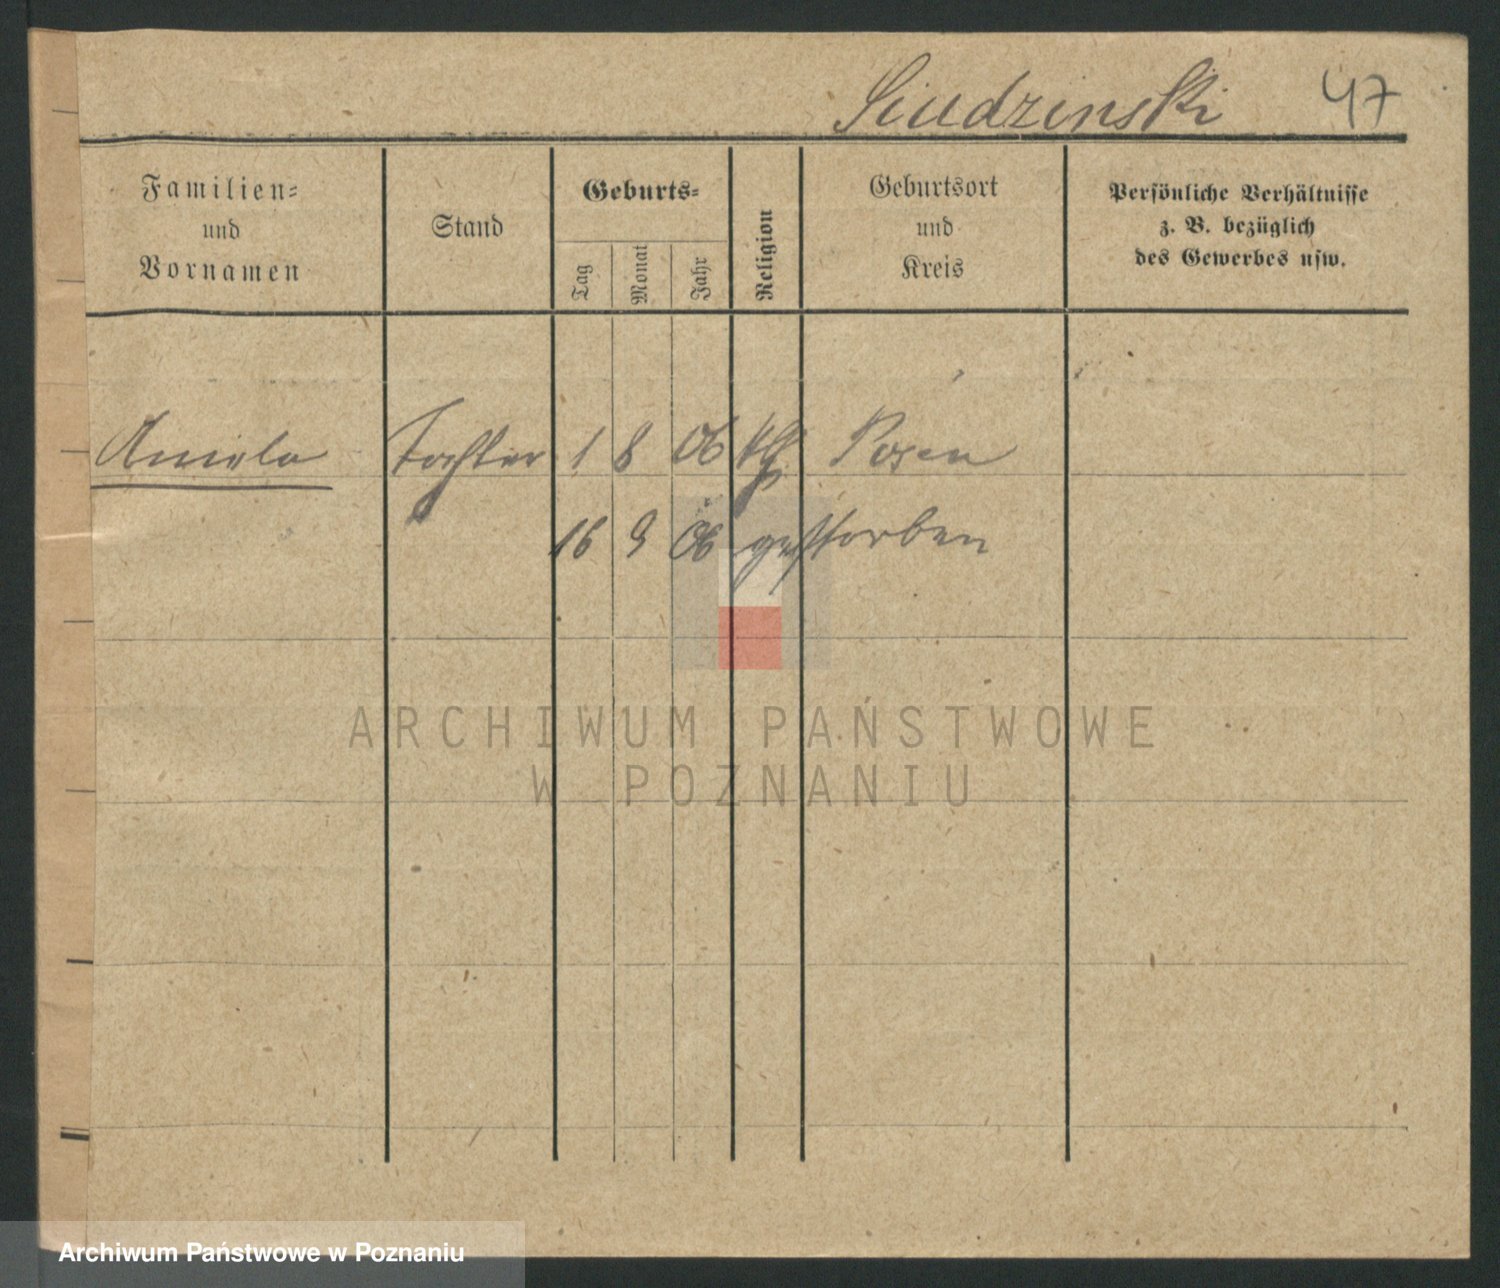 Siudzinski 47
Familien= und Vornamen
Stand
Geburts=
Tag
Monat
Jahr
Religion
Geburtsort und Kreis
Persönliche Verhältnisse
z. B. bezüglich
des Gewerbes usw.
Aniela Tochter 1 8 06 kth Posen
16 9 06 gestorben
ARCHIWUM PAŃSTWOWE
W POZNANIU
Archiwum Państwowe w Poznaniu